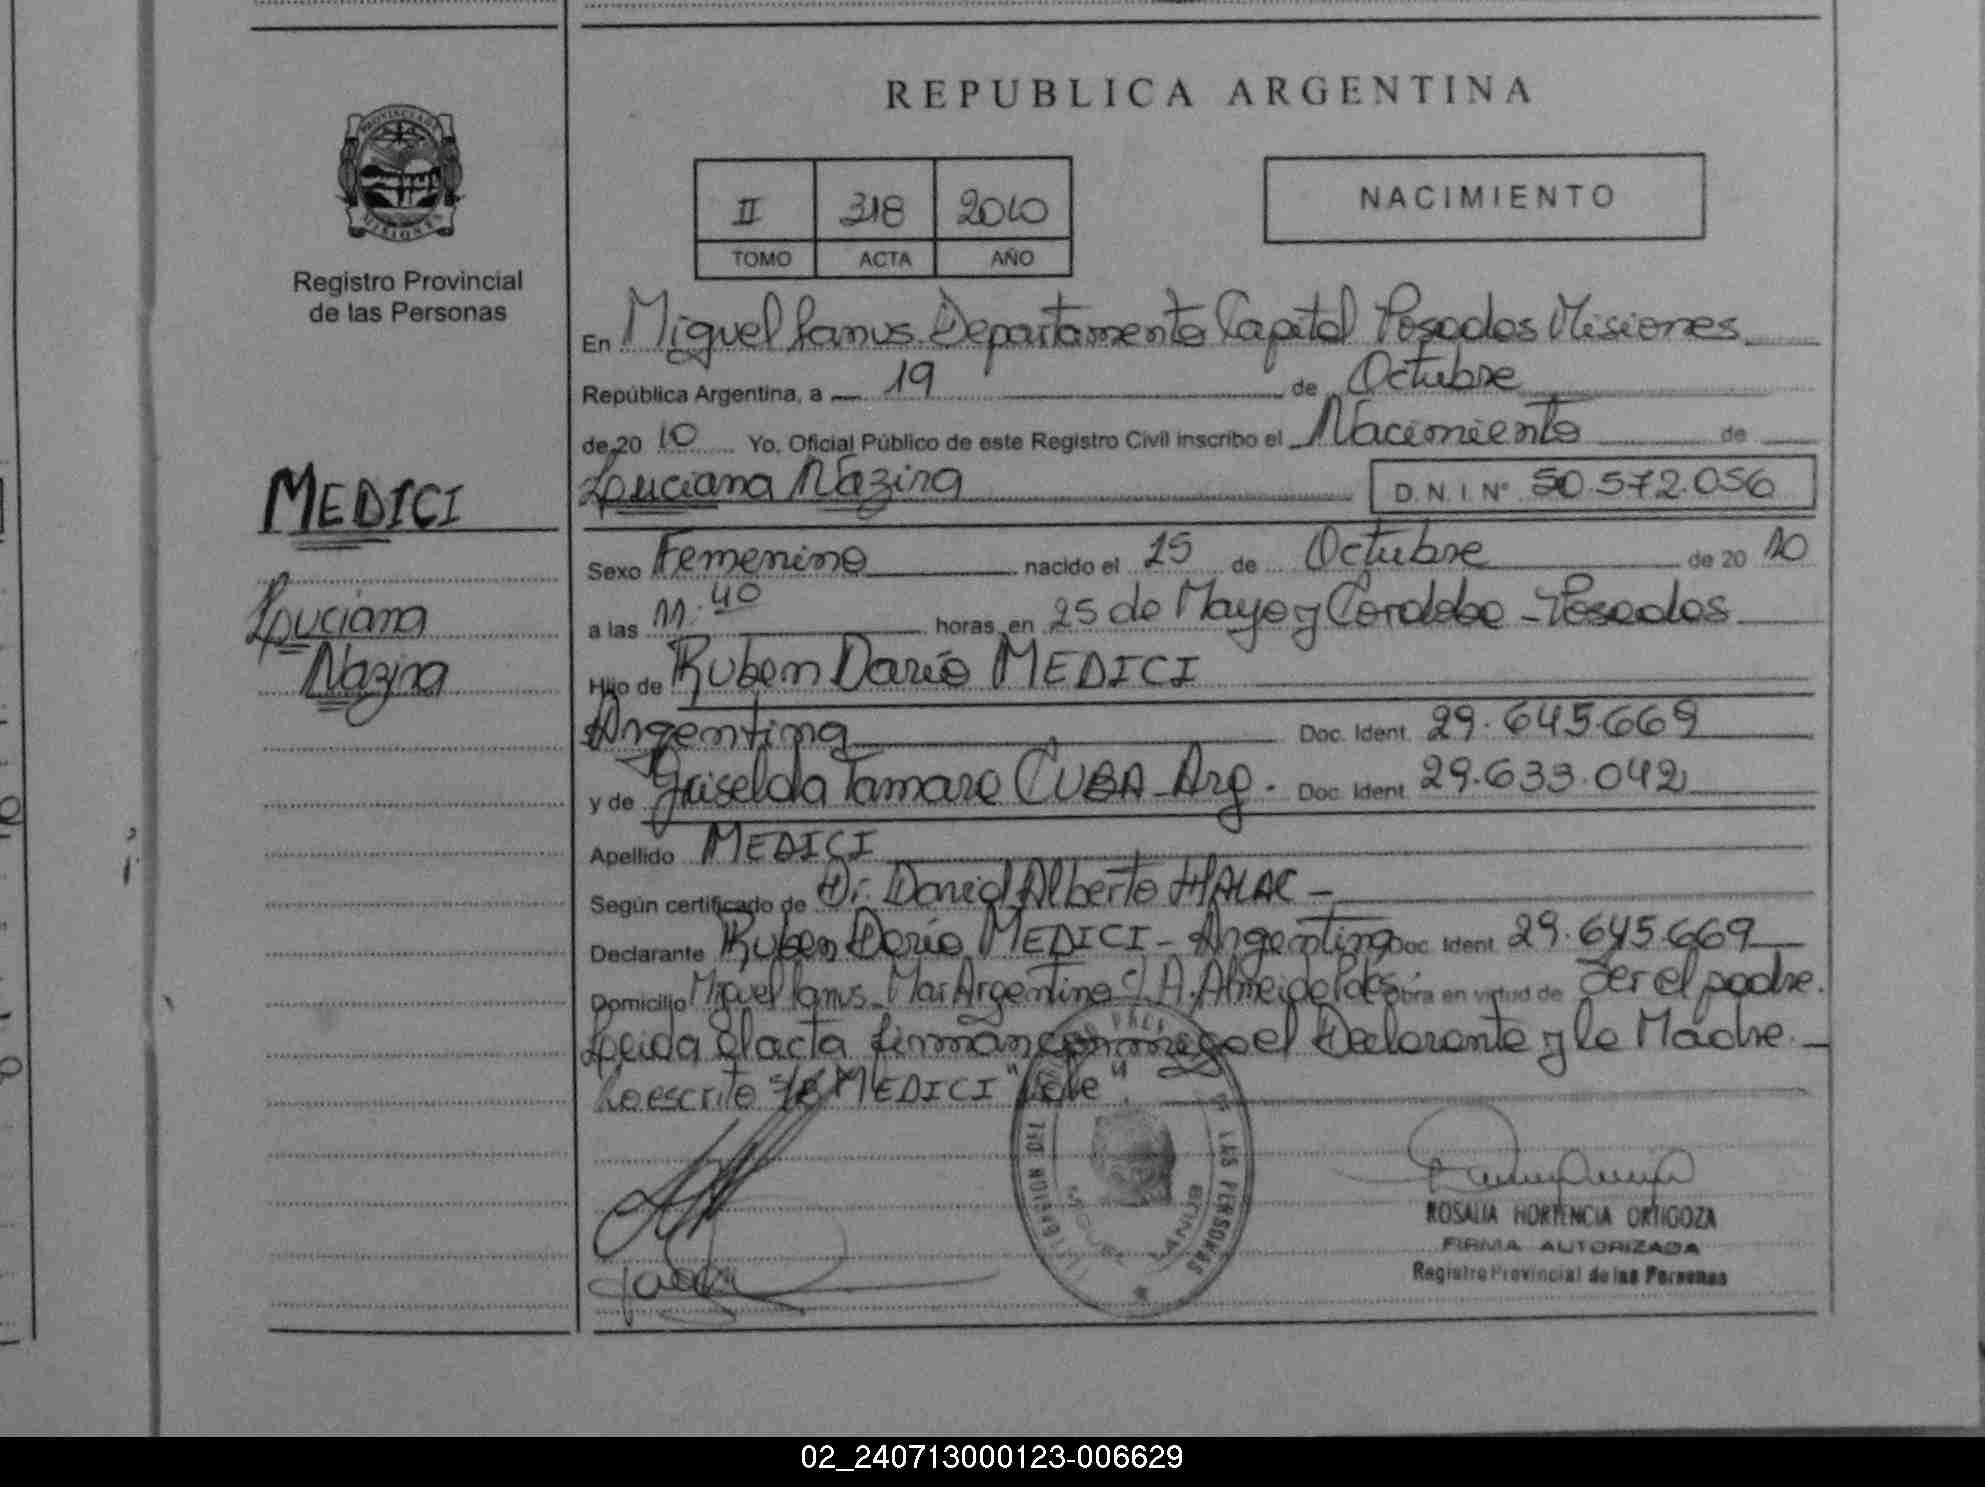 REPUBLICA ARGENTINA
PROVINCIA DE
MISIONES
Registro Provincial
de las Personas
II 318 2010
TOMO ACTA AÑO
NACIMIENTO
En Miguel Lanus Departamento Capital Posadas Misiones
República Argentina, a 19 de Octubre
de 20 10 Yo, Oficial Público de este Registro Civil inscribo el Nacimiento de
Luciana Nazira D.N.I. Nº 50.572.056
MEDICI
Luciana
Nazira
Sexo Femenino nacido el 15 de Octubre de 20 10
a las 11:40 horas, en 25 de Mayo y Cordoba - Posadas
Hijo de Ruben Dario MEDICI
Argentina Doc. Ident. 29.645.669
y de Griselda Tamara CUBA - Arg. Doc. Ident. 29.633.042
Apellido MEDICI
Según certificado de Dr. David Alberto HALAC -
Declarante Ruben Dario MEDICI - Argentino Doc. Ident. 29.645.669
Domicilio Miguel Lanus - Mar Argentino A. Almeida Pdas. Obra en virtud de Ser el padre.
Leida el acta firman conmigo el Declarante y la Madre. -
Lo escrito MEDICI "Vale".
LAS PERSONAS
MIGUEL LANUS
ROSALIA HORTENCIA ORTIGOZA
FIRMA AUTORIZADA
Registro Provincial de las Personas
02_240713000123-006629